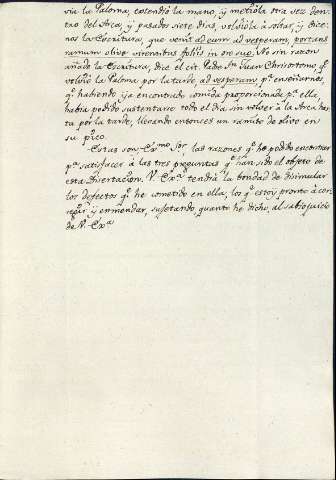 vía la Paloma, estendió la mano, y metióla otra vez den-
tro del Arca, y pasados siete dias, volvióla à soltar, y dice-
nos la Escritura, que venit ad eum ad vesperam, portans
ramum olivæ virentibus foliis in ore suo. No sin razon
añade la Escritura, dice el cit. Padre Sn. Juan Chrisostomo, q.e
volvió la Paloma por la tarde, ad vesperam, pa. enseñarnos,
q.e habiendo ya encontrado comida proporcionada pa. ella,
había podido sustentarse todo el dia sin volver à la Arca has-
ta por la tarde, llevando entonces un ramito de olivo en
su pico.
Estas son Ex.mo Sor. las razones q.e he podido encontrar
pa. satisfacer à las tres preguntas q.e han sido el objeto de
esta disertacion. V. Ex.a tendrá la bondad de disimular
los defectos q.e he cometido en ella, los q.e estoy pronto à cor-
regir y enmendar, sujetando quanto he dicho, al sabio juicio
de V. Ex.a